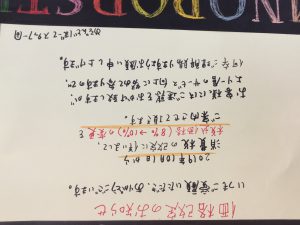 価格改定のお知らせ
いつもご愛顧いただき、ありがとうございます。
2019年10月1日から
消費税の改定に伴いまして、
税込価格(8%→10%)の変更を
ご案内させて頂きます。
お客様にはご迷惑をおかけしますが、
より一層のサービス向上に努めますので、
何卒ご理解賜ります様お願い申し上げます。
スタッフ一同